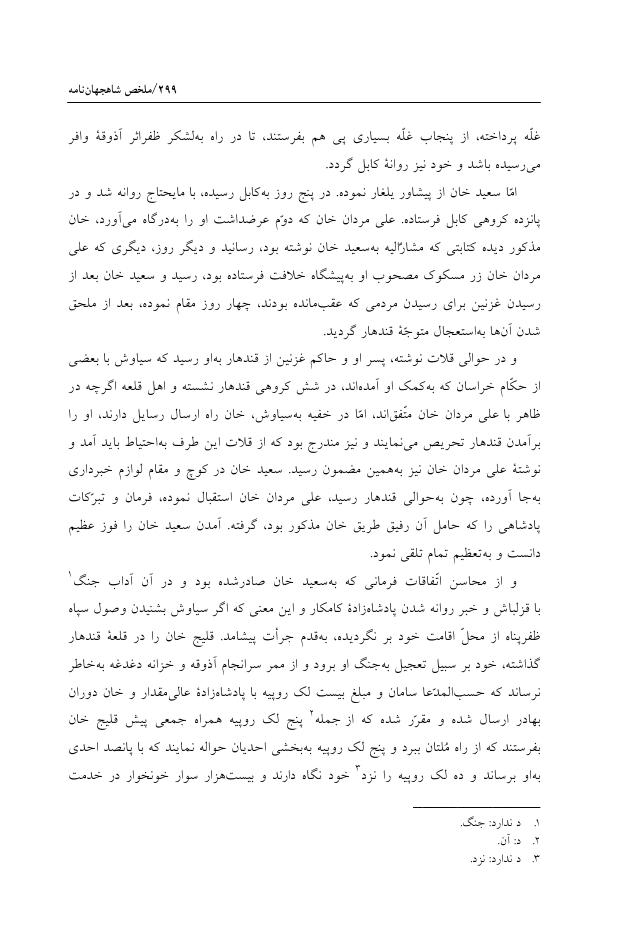 ۲۹۹/ملخص شاهجهان‌نامه
غلّه پرداخته، از پنجاب غلّه بسیاری پی هم بفرستند، تا در راه به‌لشکر ظفراثر آذوقۀ وافر
می‌رسیده باشد و خود نیز روانۀ کابل گردد.
امّا سعید خان از پیشاور یلغار نموده. در پنج روز به‌کابل رسیده، با مایحتاج روانه شد و در
پانزده کروهی کابل فرستاده. علی مردان خان که دوّم عرضداشت او را به‌درگاه می‌آورد، خان
مذکور دیده کتابتی که مشارٌالیه به‌سعید خان نوشته بود، رسانید و دیگر روز، دیگری که علی
مردان خان زر مسکوک مصحوب او به‌پیشگاه خلافت فرستاده بود، رسید و سعید خان بعد از
رسیدن غزنین برای رسیدن مردمی که عقب‌مانده بودند، چهار روز مقام نموده، بعد از ملحق
شدن آن‌ها به‌استعجال متوجّۀ قندهار گردید.
و در حوالی قلات نوشته، پسر او و حاکم غزنین از قندهار به‌او رسید که سیاوش با بعضی
از حکّام خراسان که به‌کمک او آمده‌اند، در شش کروهی قندهار نشسته و اهل قلعه اگرچه در
ظاهر با علی مردان خان متّفق‌اند، امّا در خفیه به‌سیاوش، خان راه ارسال رسایل دارند، او را
برآمدن قندهار تحریص می‌نمایند و نیز مندرج بود که از قلات این طرف به‌احتیاط باید آمد و
نوشتۀ علی مردان خان نیز به‌همین مضمون رسید. سعید خان در کوچ و مقام لوازم خبرداری
به‌جا آورده، چون به‌حوالی قندهار رسید، علی مردان خان استقبال نموده، فرمان و تبرّکات
پادشاهی را که حامل آن رفیق طریق خان مذکور بود، گرفته. آمدن سعید خان را فوز عظیم
دانست و به‌تعظیم تمام تلقی نمود.
و از محاسن اتّفاقات فرمانی که به‌سعید خان صادرشده بود و در آن آداب جنگ۱
با قزلباش و خبر روانه شدن پادشاه‌زادۀ کامکار و این معنی که اگر سیاوش بشنیدن وصول سپاه
ظفرپناه از محلّ اقامت خود بر نگردیده، به‌قدم جرأت پیش‌آمد. قلیج خان را در قلعۀ قندهار
گذاشته، خود بر سبیل تعجیل به‌جنگ او برود و از ممر سرانجام آذوقه و خزانه دغدغه به‌خاطر
نرساند که حسب‌المدّعا سامان و مبلغ بیست لک روپیه با پادشاه‌زادۀ عالی‌مقدار و خان دوران
بهادر ارسال شده و مقرّر شده که از جمله۲ پنج لک روپیه همراه جمعی پیش قلیج خان
بفرستند که از راه مُلتان ببرد و پنج لک روپیه به‌بخشی احدیان حواله نمایند که با پانصد احدی
به‌او برساند و ده لک روپیه را نزد۳ خود نگاه دارند و بیست‌هزار سوار خونخوار در خدمت
۱. د ندارد: جنگ.
۲. د: آن.
۳. د ندارد: نزد.